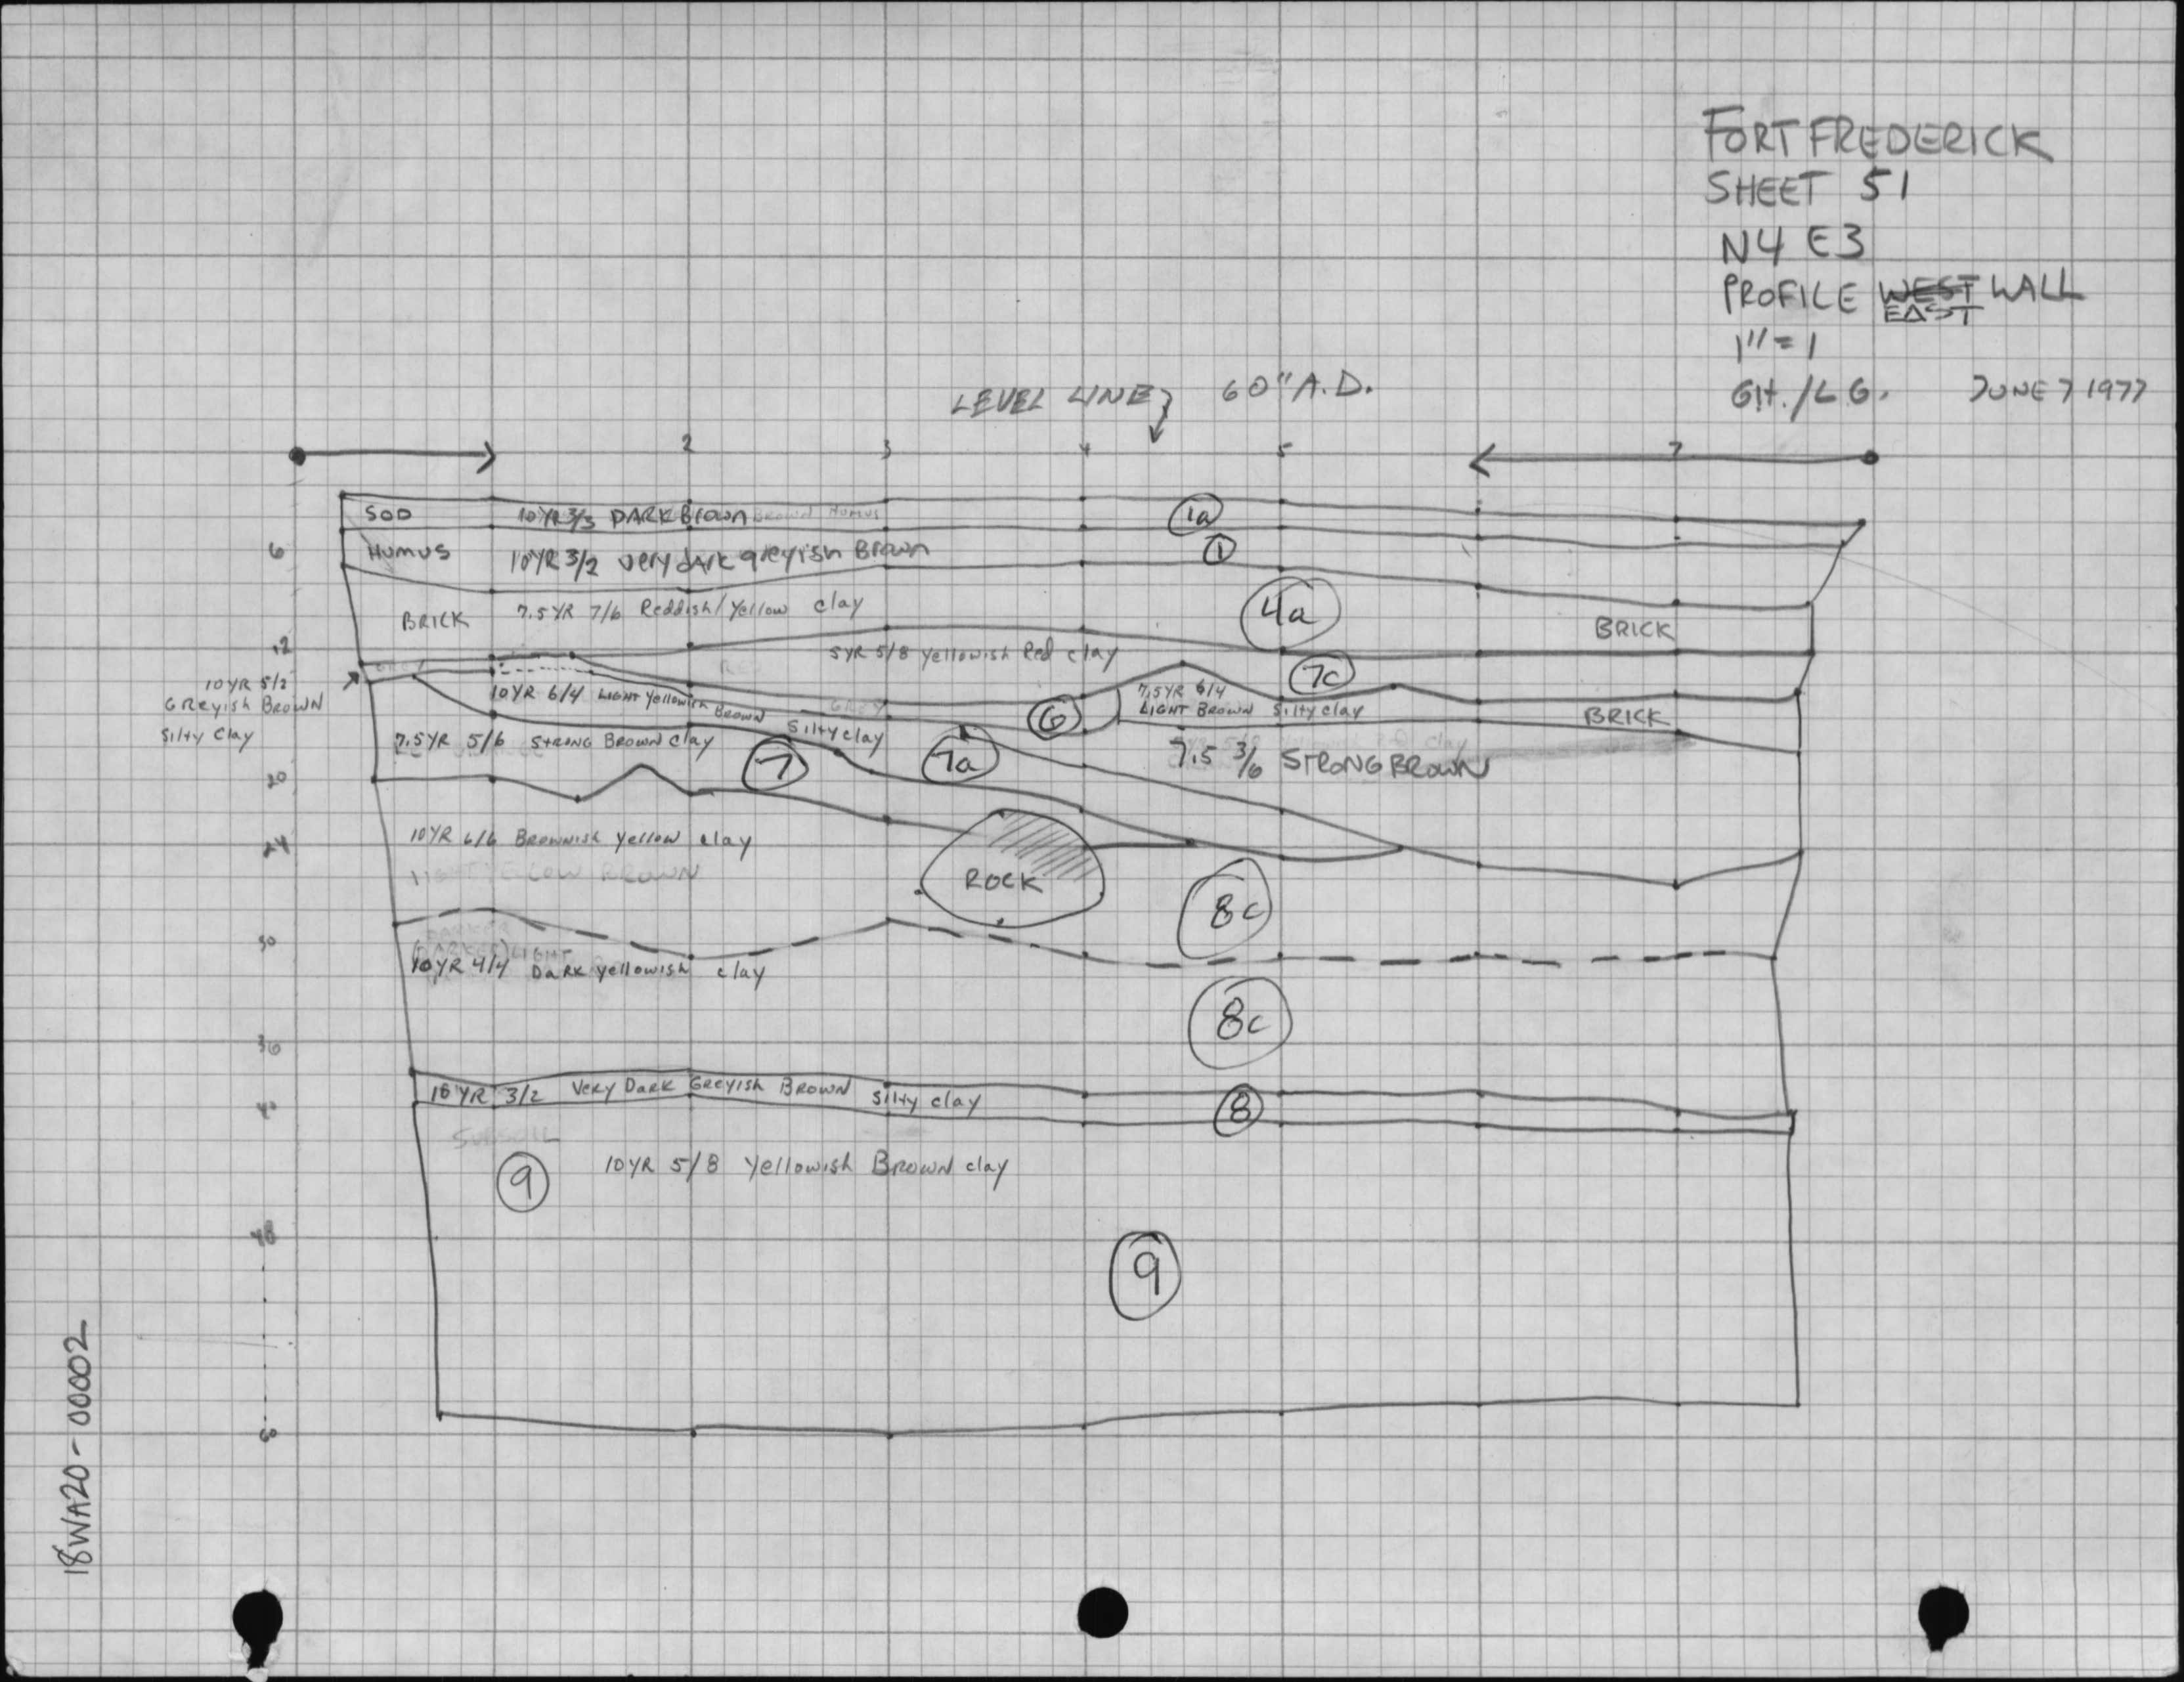 FORT FREDERICK
SHEET 51
N4 E3
PROFILE WEST WALL
EAST
1" = 1
GH./L G. JUNE 7 1977
LEVEL LINE 60" A.D.
2 3 4 5 7
SOD 10YR 3/3 DARK Brown BROWN HUMUS 1a
6
HUMUS 10YR 3/2 very dARK greyish Brown 1
BRICK 7.5YR 7/6 Reddish/Yellow clay 4a BRICK
12
5YR 5/8 Yellowish Red clay 7c
GREY
RED
10YR 5/2
GREyish BROWN
Silty Clay
10YR 6/4 LIGHT Yellowish BROWN Silty clay
GREY
6
7.5YR 6/4
LIGHT BROWN Silty clay BRICK
7.5YR 5/6 STRONG BROWN Clay 7 7a
7.5 3/6 STRONG BROWN
20
10YR 6/6 BROWNISH Yellow clay
24
LIGHT YELLOW BROWN
ROCK 8c
30
DARKER
(DARKER) LIGHT
10YR 4/4 DARK yellowish clay
8c
36
10YR 3/2 Very DARK GREYISH BROWN Silty clay 8
40
SUBSOIL
9 10YR 5/8 Yellowish BROWN clay
48
9
60
18WA20-00002